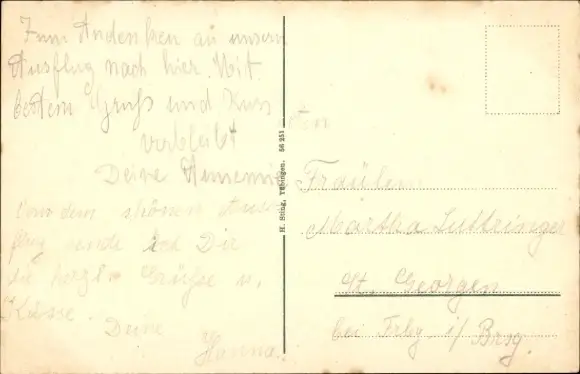 Zum Andenken an unsern
Ausflug nach hier. Mit
bestem Gruß und Kuss
verbleibt
Deine Annemie
Von dem schönen Aus-
flug sende ich Dir
die herzl. Grüße u.
Küsse.
Deine
Hanna.
H. Sting, Tübingen. 56 251
An
Fräulein
Martha Luttringer
St. Georgen
bei Frbg. i/ Brsg.